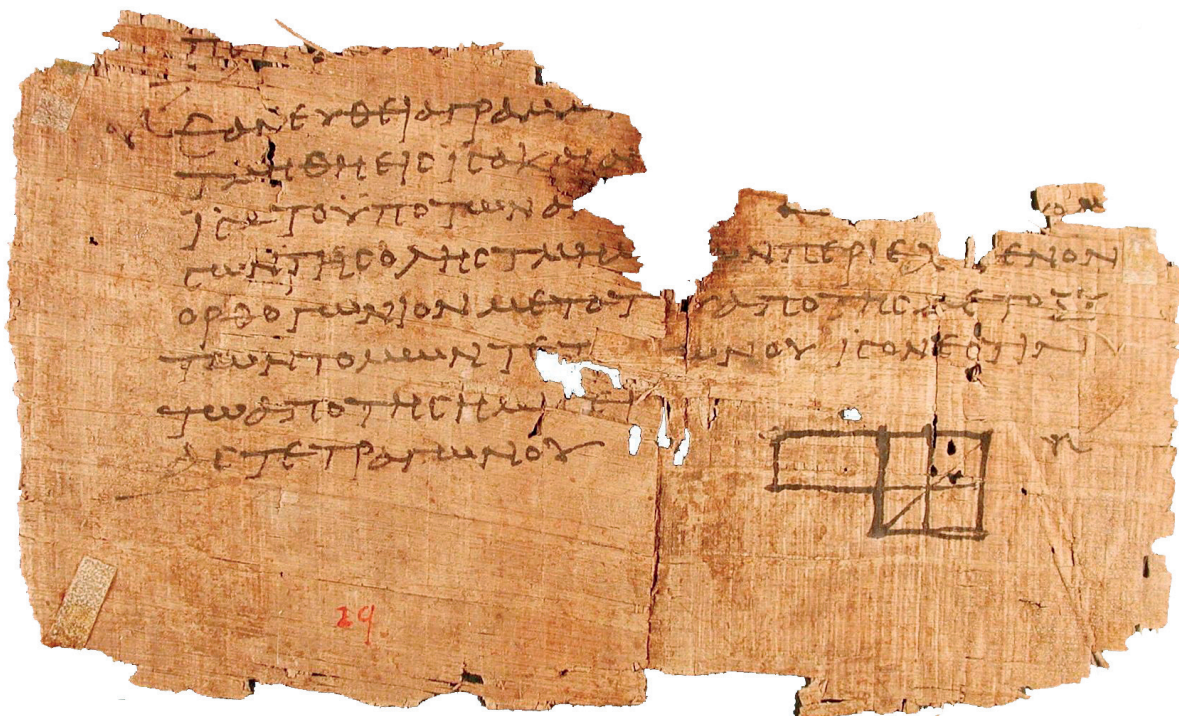 ΕΑΝΕΥΘΕΙΑΓΡΑΜΜ
ΤΜΗΘΗΕΙϹΙϹΑΚΑΙΑ
ΙϹΑΤΟΥΠΟΤΩΝΑ
ϹΩΝΤΗϹΟΛΗϹΤΜΗΜ ΩΝΠΕΡΙΕΧ ΜΕΝΟΝ
ΟΡΘΟΓΩΝΙΟΝΜΕΤΑΤ ΑΠΟΤΗϹΜΕΤΟΞΥ
ΤΩΝΤΟΜΩΝΤΕΤ ΩΝΟΥΙϹΟΝΕϹΤΙΝ
ΤΩΑΠΟΤΗϹΗΜΙϹΕΙ
ΑϹΤΕΤΡΑΓΩΝΟΥ
29